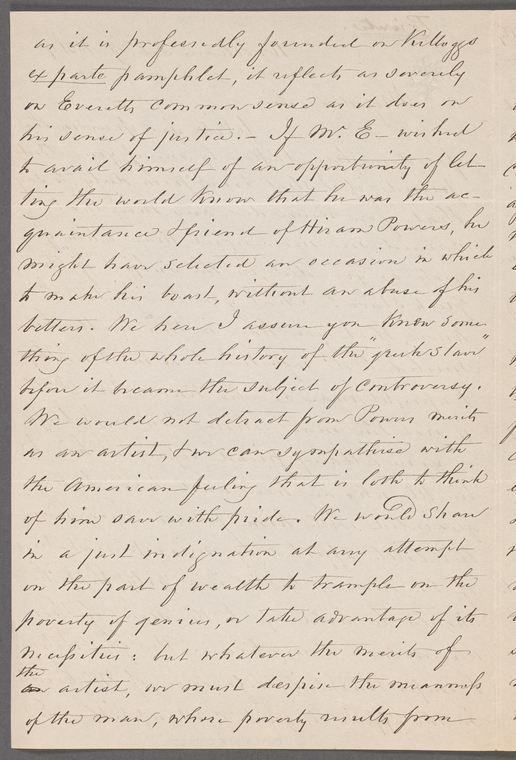 as it is professedly founded on Kelloggs
ex parte pamphlet, it reflects as severely
on Everetts common sense as it does on
his sense of justice. – If Mr. E – wished
to avail himself of an opportunity of let-
ting the world know that he was the ac-
quaintance & friend of Hiram Powers, he
might have selected an occasion in which
to make his boast, without an abuse of his
betters. We here I assure you knew some-
thing of the whole history of the "greek slave"
before it became the subject of controversy.
We would not detract from Powers merits
as an artist, & we can sympathise with
the American feeling that is loth to think
of him save with pride. We would share
in a just indignation at any attempt
on the part of wealth to trample on the
poverty of genius, or take advantage of its
necessities: but whatever the merits of
the
an artist, we must despise the meanness
of the man, whose poverty results from